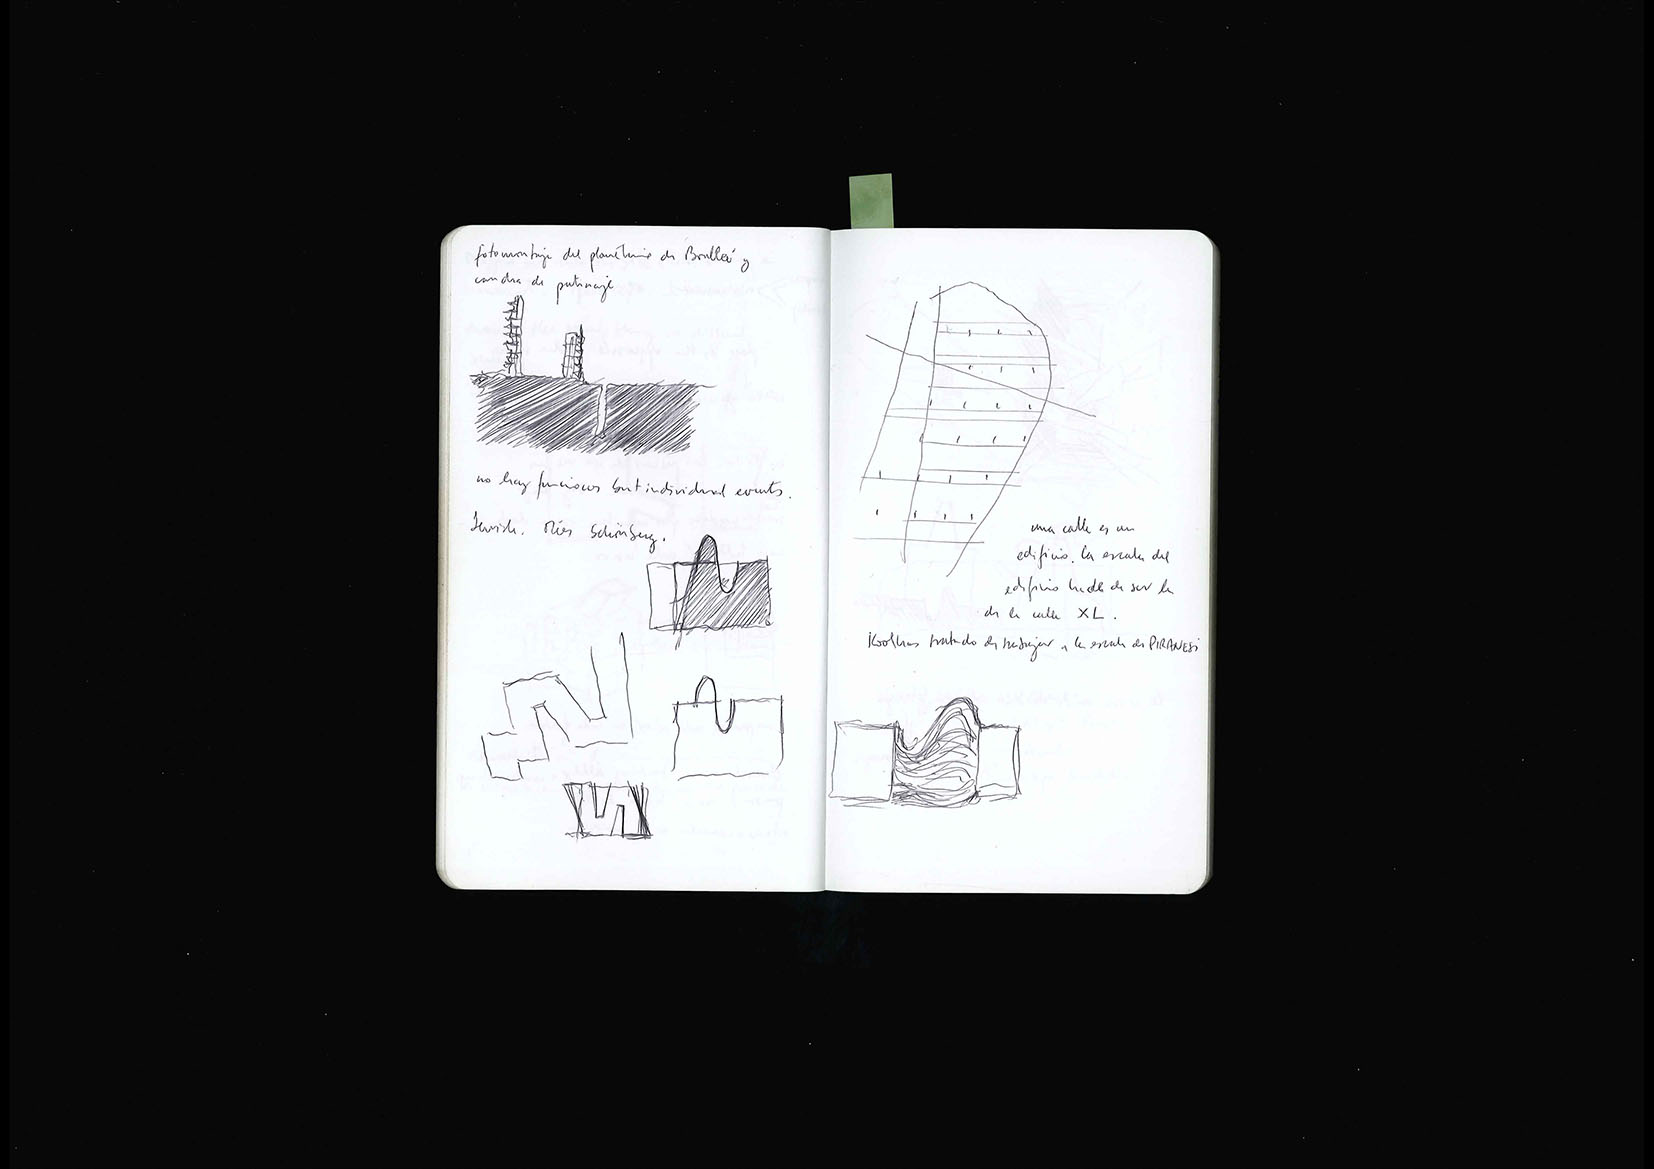 fotomontaje del planetario de Boulleé y
cancha de patinaje
no hay funciones but individual events.
Jewish. Mies Schönberg.
una calle es un
edificio. La escala del
edificio ha de ser la
de la calle XL.
Koolhas tratado de trabajar a la escala de PIRANESI